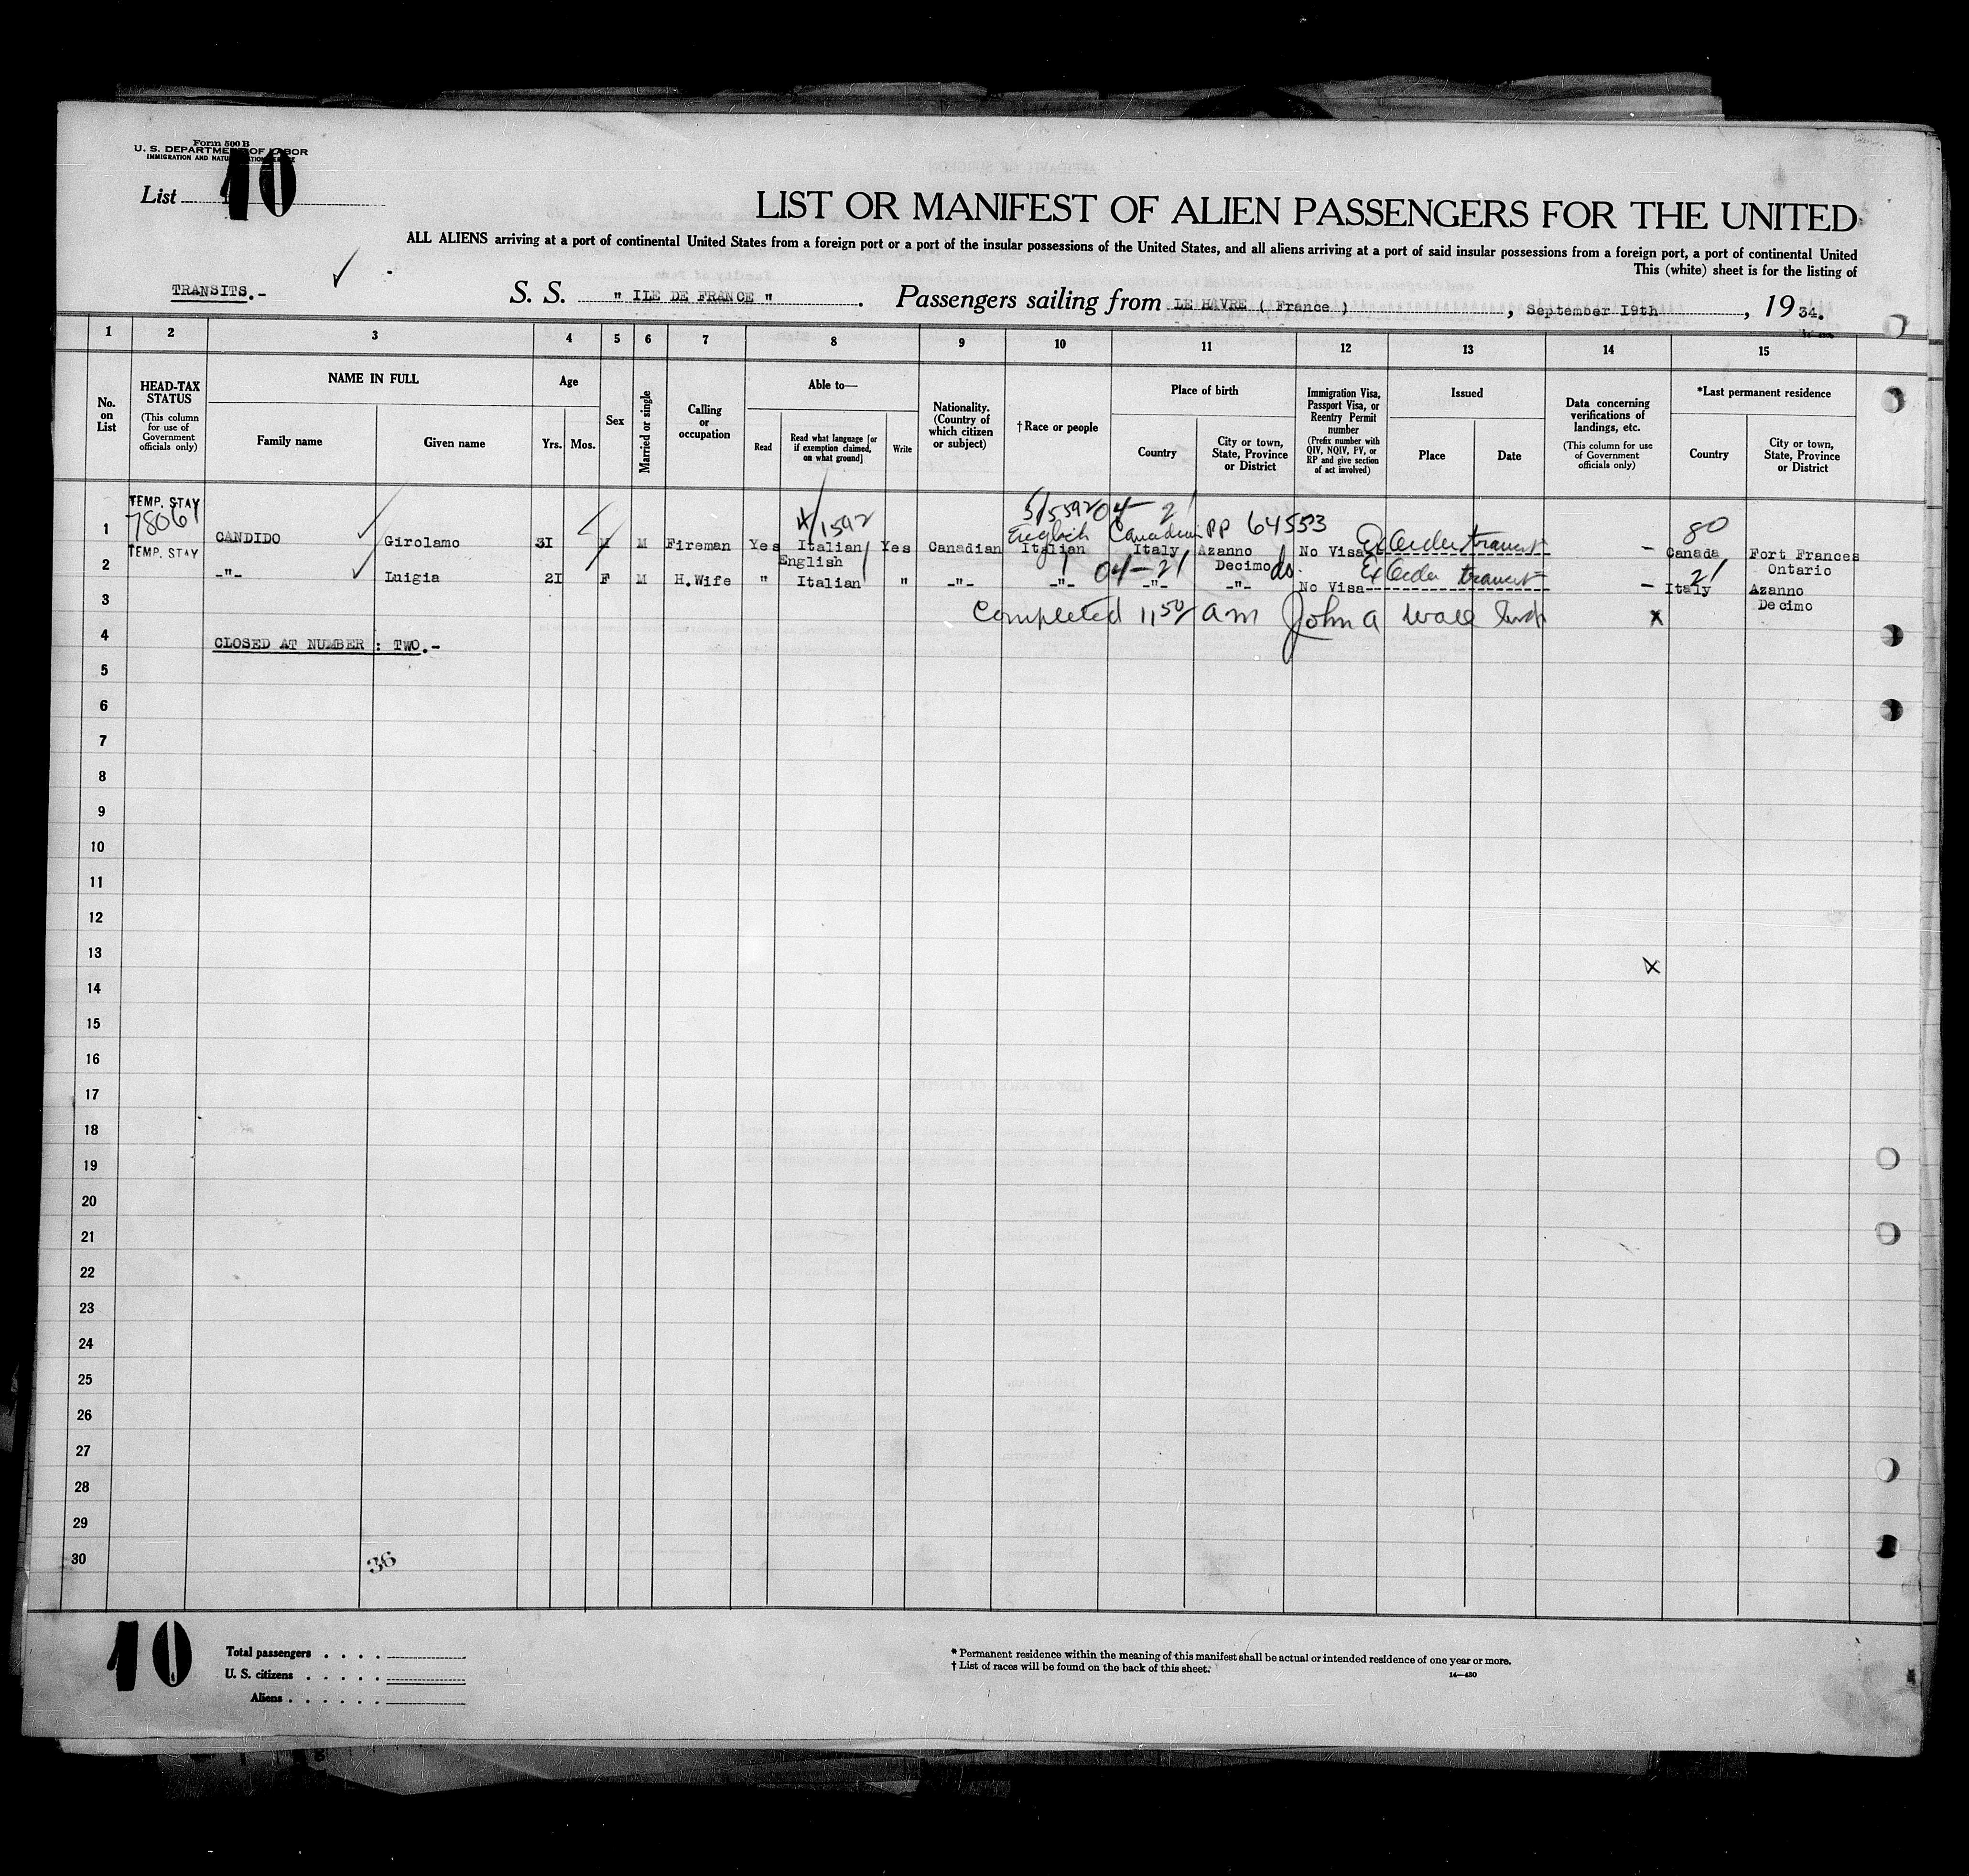 Form 500 B
U. S. DEPARTMENT OF LABOR
IMMIGRATION AND NATURALIZATION SERVICE
List 10
LIST OR MANIFEST OF ALIEN PASSENGERS FOR THE UNITED
ALL ALIENS arriving at a port of continental United States from a foreign port or a port of the insular possessions of the United States, and all aliens arriving at a port of said insular possessions from a foreign port, a port of continental United
This (white) sheet is for the listing of
TRANSITS.-
S. S. " ILE DE FRANCE ". Passengers sailing from LE HAVRE ( France ), September 19th, 1934.
1 2 3 4 5 6 7 8 9 10 11 12 13 14 15
No. on List
HEAD-TAX STATUS
(This column for use of Government officials only)
NAME IN FULL
Family name
Given name
Age
Yrs.
Mos.
Sex
Married or single
Calling or occupation
Able to—
Read
Read what language [or if exemption claimed, on what ground]
Write
Nationality. (Country of which citizen or subject)
†Race or people
Place of birth
Country
City or town, State, Province or District
Immigration Visa, Passport Visa, or Reentry Permit number
(Prefix number with QIV, NQIV, PV, or RP and give section of act involved)
Issued
Place
Date
Data concerning verifications of landings, etc.
(This column for use of Government officials only)
*Last permanent residence
Country
City or town, State, Province or District
TEMP. STAY
78061
4/1592
04-21
English Canadian PP 64553
80
1 CANDIDO Girolamo 31 M M Fireman Yes Italian English Yes Canadian Italian Italy Azanno Decimo No Visa Ex Order transit - Canada Fort Frances Ontario
TEMP. STAY
04-21 do.
21
2 -"- Luigia 21 F M H.Wife " Italian " -"- -"- -"- -"- No Visa Ex Order transit - Italy Azanno Decimo
3 Completed 11,50 am John A Wall x
4 CLOSED AT NUMBER : TWO.-
5
6
7
8
9
10
11
12
13 x
14
15
16
17
18
19
20
21
22
23
24
25
26
27
28
29
30
36
10
Total passengers . . . .
U. S. citizens . . . . .
Aliens . . . . . .
* Permanent residence within the meaning of this manifest shall be actual or intended residence of one year or more.
† List of races will be found on the back of this sheet.
14—430